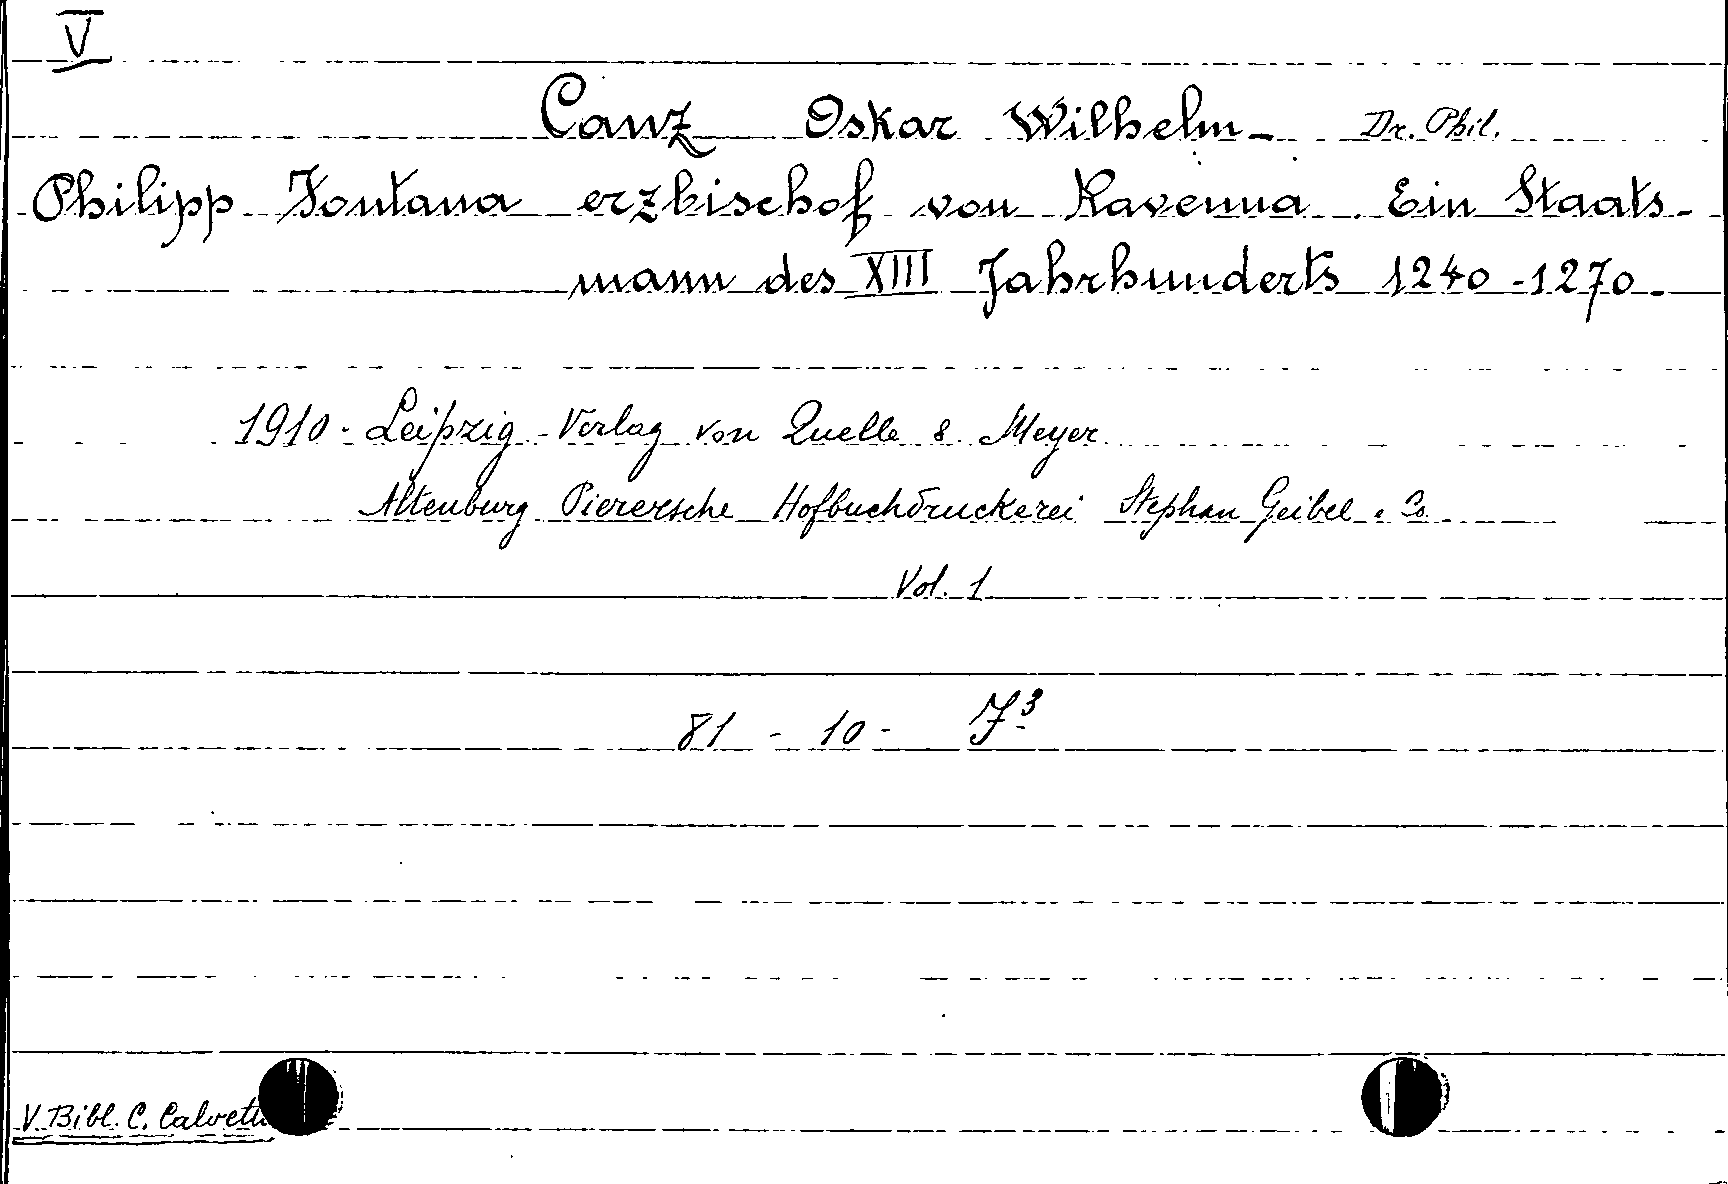 V
Canz Oskar Wilhelm - Dr. Phil.
Philipp Fontana erzbischof von Ravenna. Ein Staats-
mann des XIII Jahrhunderts 1240-1270.
1910 - Leipzig - Verlag von Quelle & Meyer
Altenburg Pierersche Hofbuchdruckerei Stephan Geibel & Co.
Vol. 1
81 - 10 - 
V. Bibl. C.